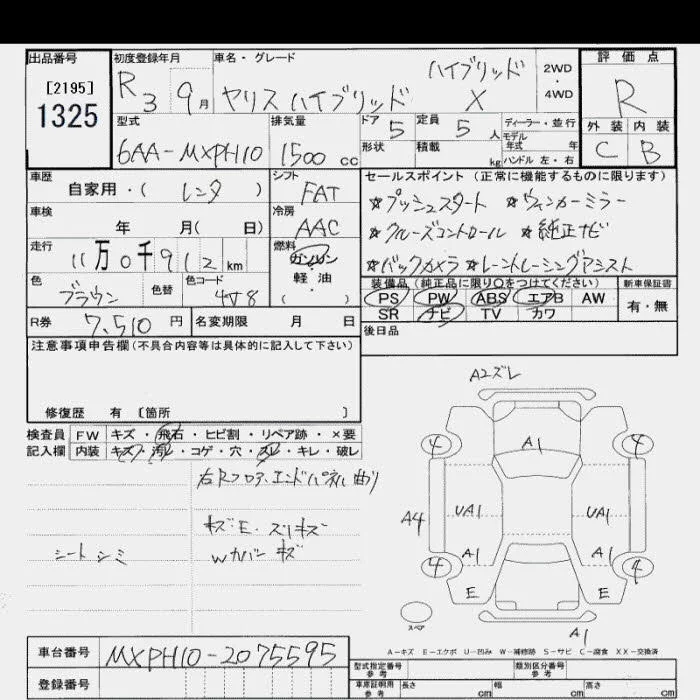 出品番号 初度登録年月 車名・グレード 評価点
[2195] R3 9月 ヤリス ハイブリッド ハイブリッド X 2WD・4WD R
1325
型式 排気量 ドア 5 定員 5人 ディーラー・並行 外装 内装
6AA-MXPH10 1500cc 形状 積載 kg モデル年式 年 ハンドル 左・右 C B
車歴 シフト セールスポイント (正常に機能するものに限ります)
自家用・( レンタ ) FAT ☆プッシュスタート ☆ウィンカーミラー
車検 年 月( 日) 冷房 AAC ☆クルーズコントロール ☆純正ナビ
走行 11万0千912km 燃料 ガソリン・軽・油 ☆バックカメラ ☆レーントレーシングアシスト
色 ブラウン 色替 色コード 4V8 装備品(純正品に限り○をつけてください) 新車保証書
PS PW ABS エアB AW 有・無
R券 7,510円 名変期限 月 日 SR ナビ TV カワ
注意事項申告欄(不具合内容等は具体的に記入して下さい) 後日品
修復歴 有 〔箇所 〕
検査員 FW キズ・飛石・ヒビ割・リペア跡・×要
記入欄 内装 キズ・汚・コゲ・穴・スレ・キレ・破レ
右Rフロア、エンドパネル曲り
キズ・E・スリキズ
シートシミ Wカバーキズ
A2ズレ
4 A1 4
A4 UA1 UA1
A1 A1
4 4
E E
スペア A1
A-キズ E-エクボ U-凹み W-補修跡 S-サビ C-腐食 XX-交換済
車台番号 MXPH10-2075595 型式指定番号 参考 類別区分番号 参考
登録番号 車庫証明用 参考 長さ cm 幅 cm 高さ cm